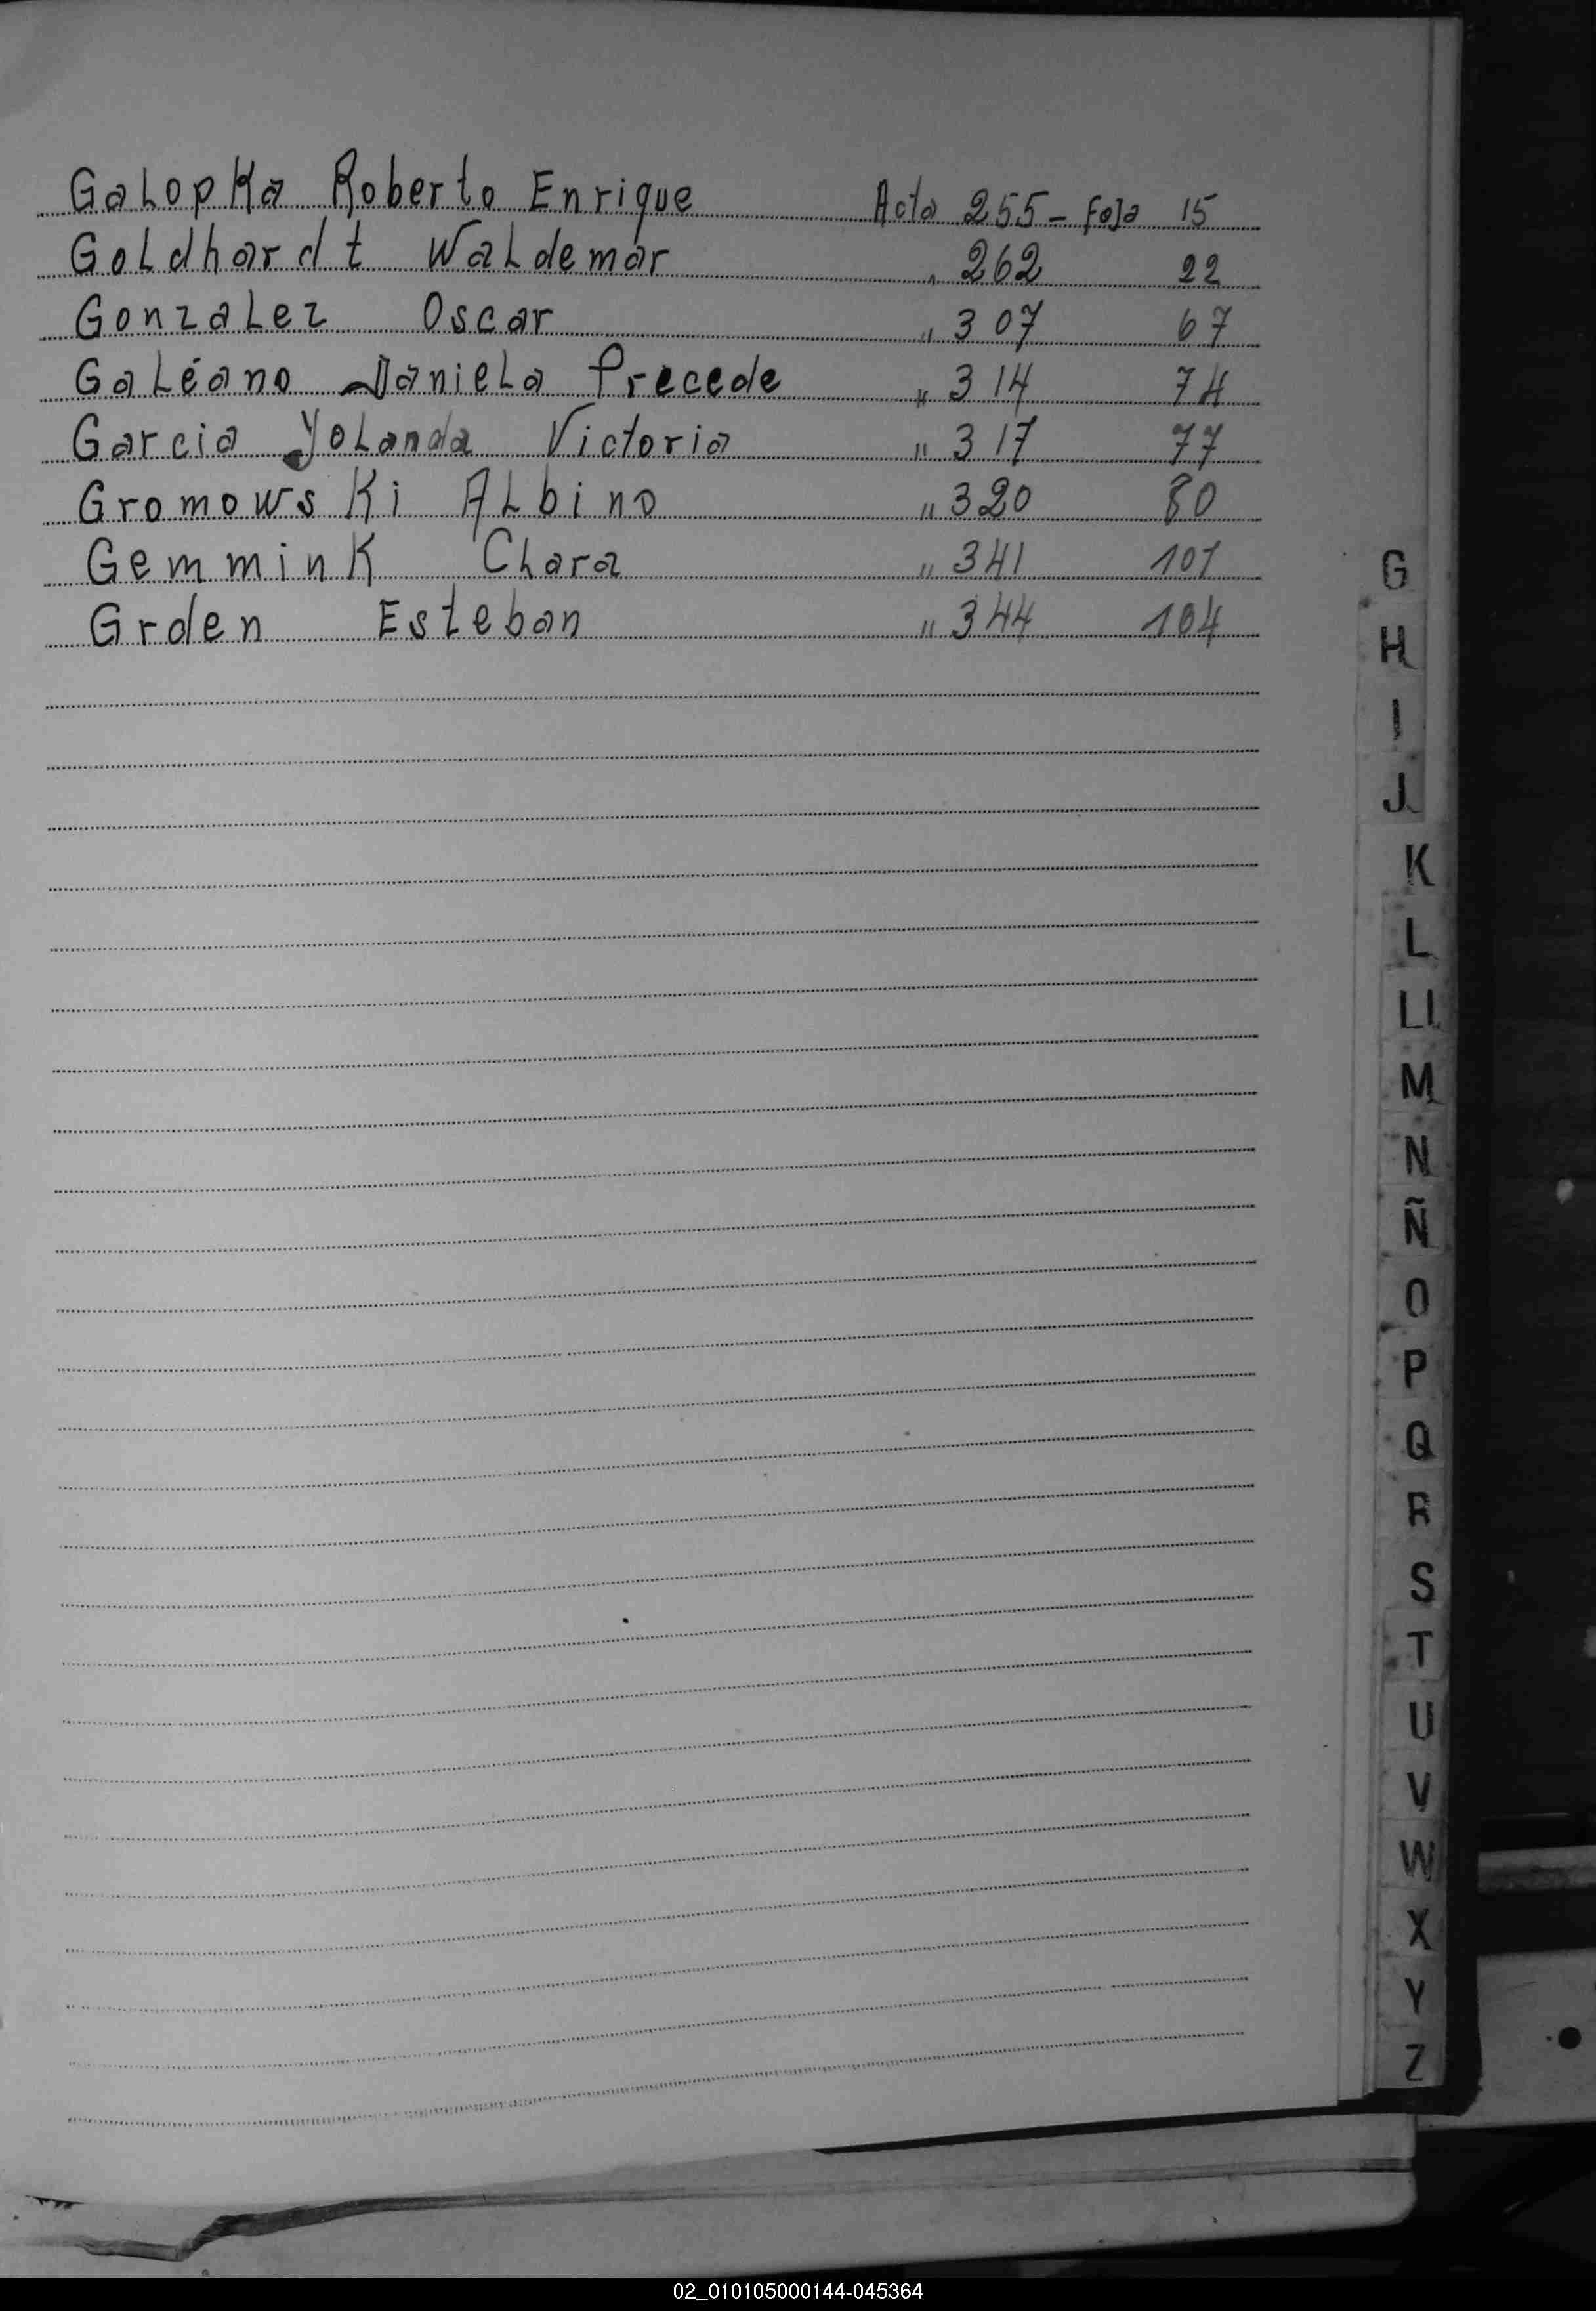 Galopka Roberto Enrique Acta 255 - Foja 15
Goldhardt Waldemar " 262 22
Gonzalez Oscar " 307 67
Galéano Daniela Precede " 314 74
Garcia Yolanda Victoria " 317 77
Gromowski Albino " 320 80
Gemmink Clara " 341 101
Grden Esteban " 344 104
G
H
I
J
K
L
Ll
M
N
Ñ
O
P
Q
R
S
T
U
V
W
X
Y
Z
02_010105000144-045364